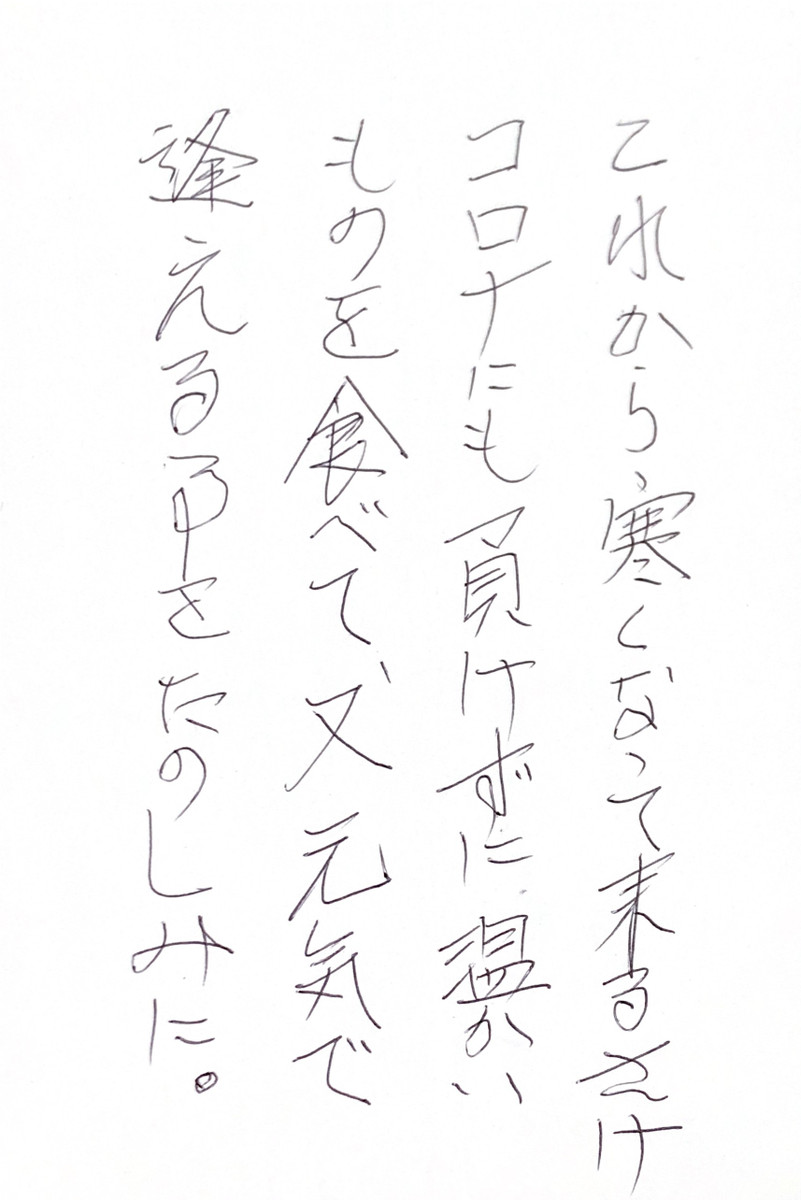 これから寒くなって来るさけ
コロナにも負けずに温かい
ものを食べて、又元気で
逢える事をたのしみに。